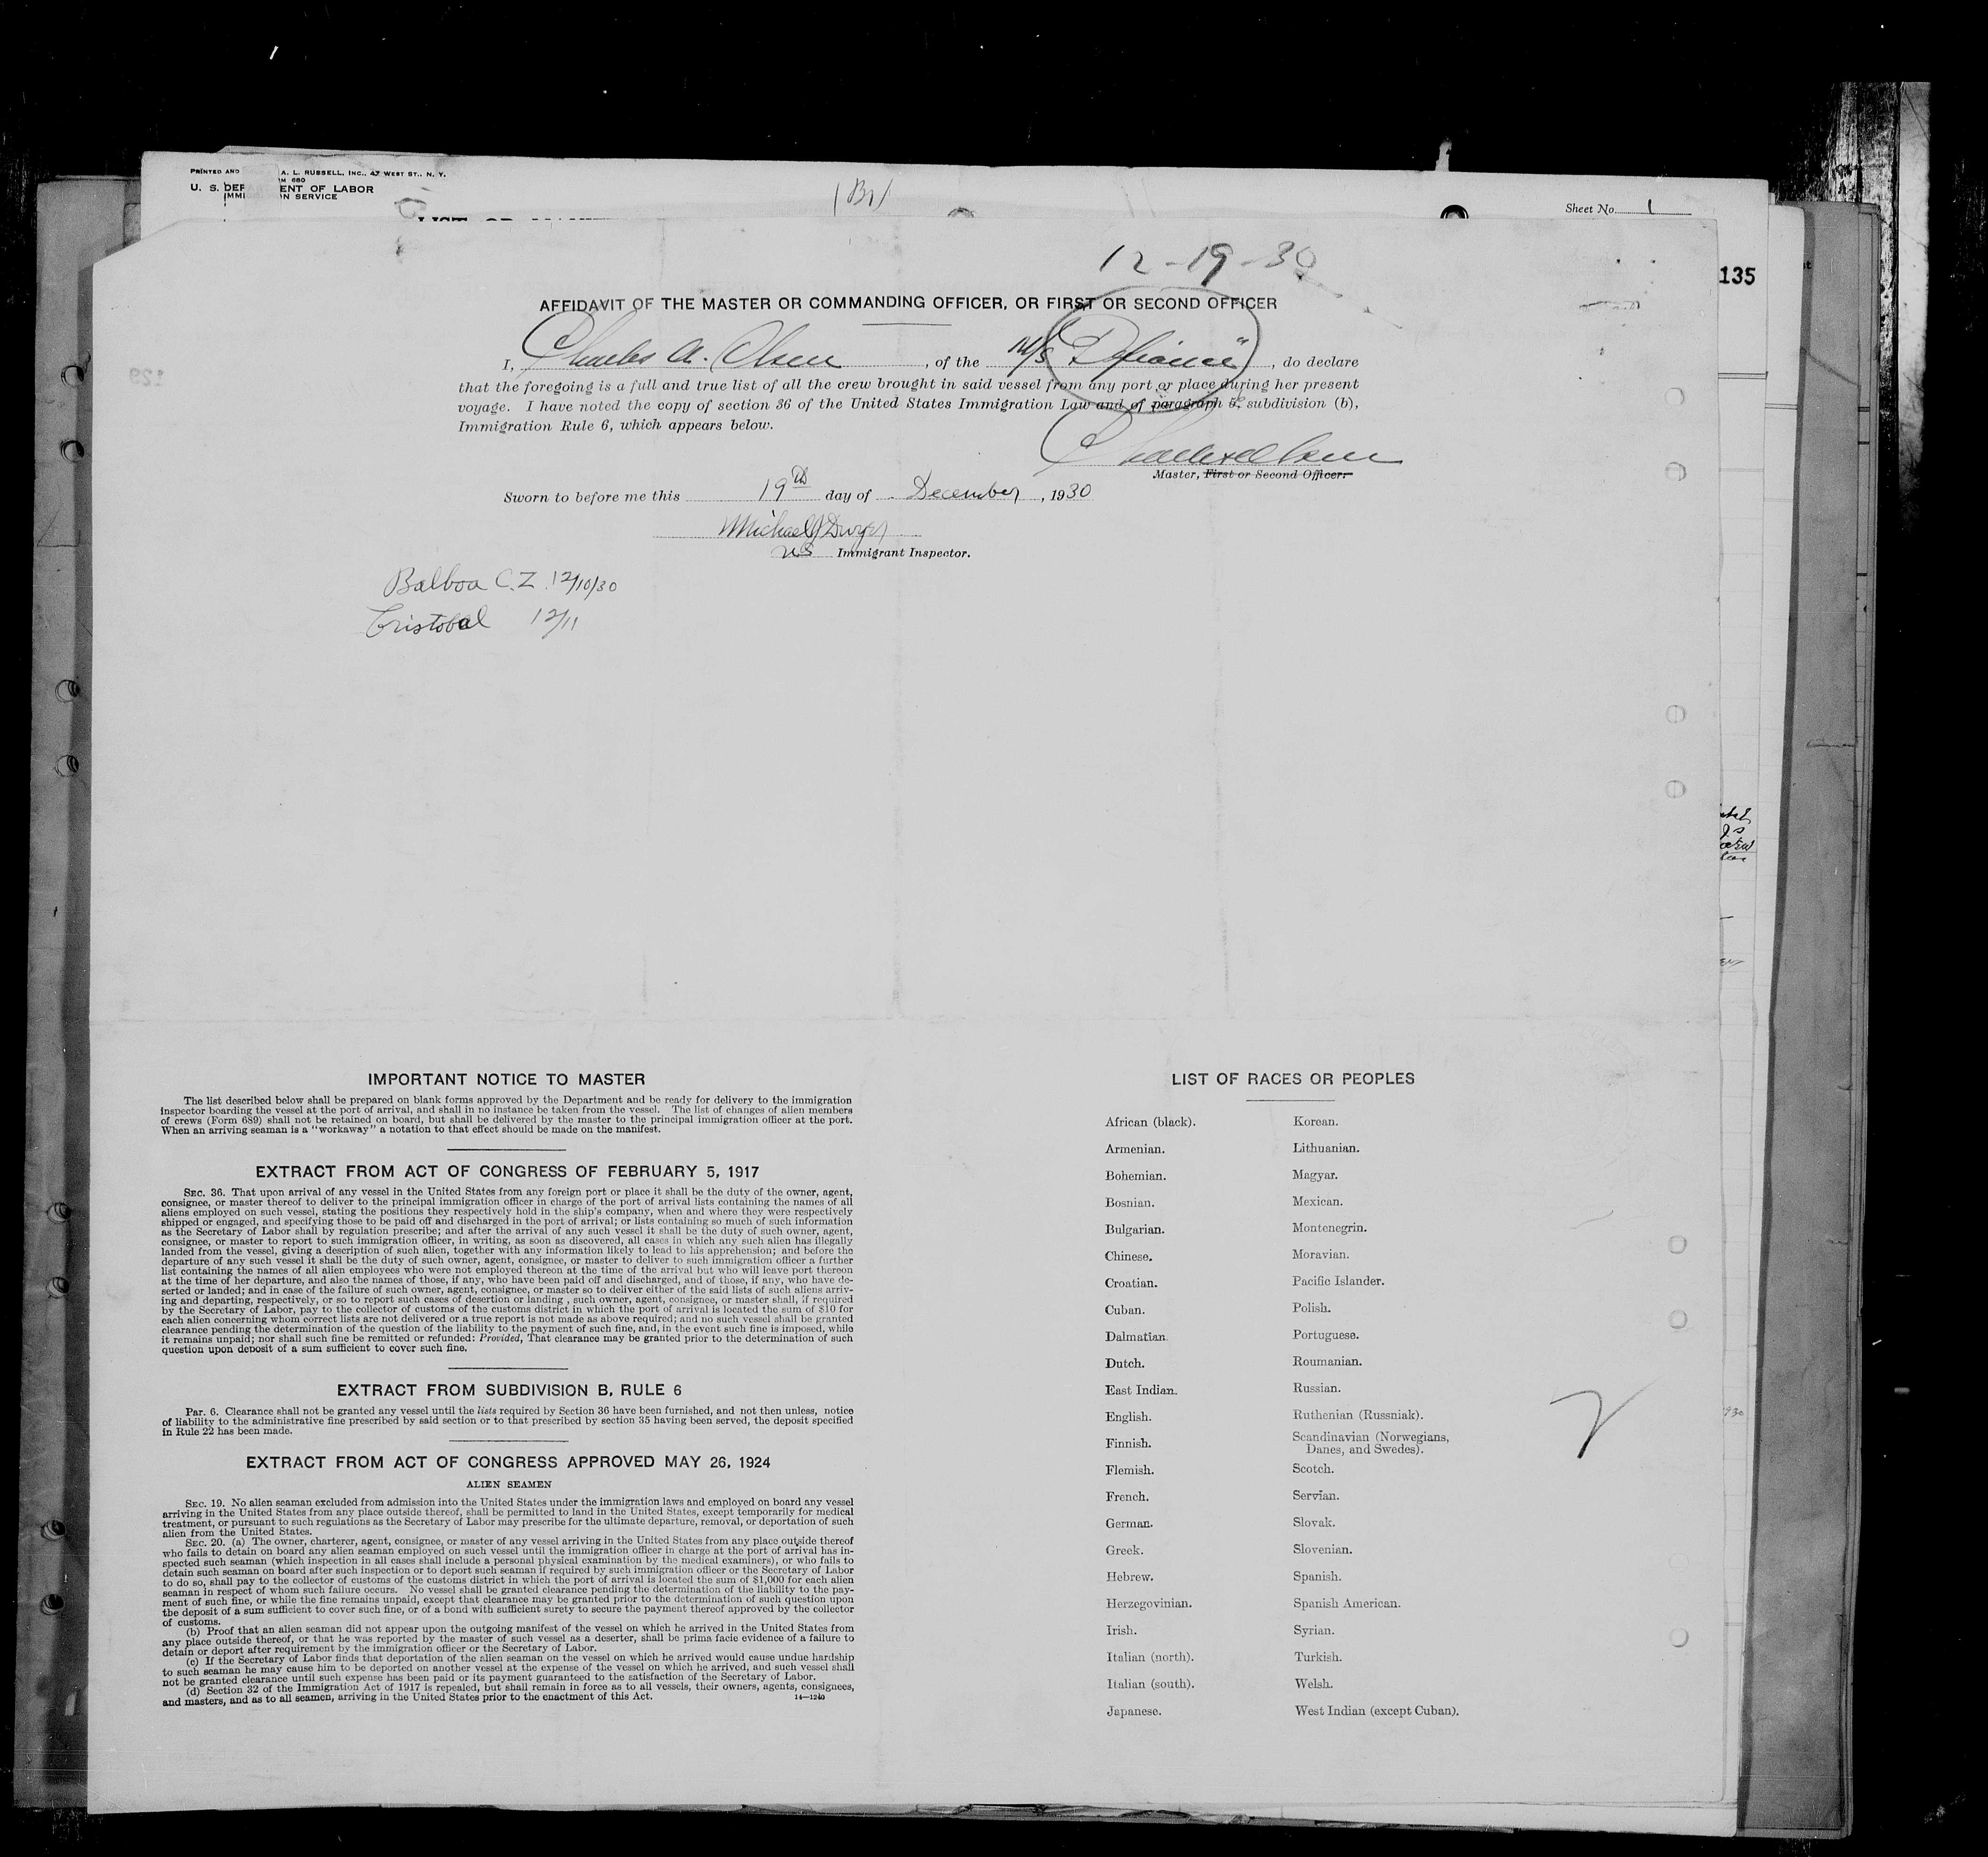 PRINTED AND A. L. RUSSELL, INC., 47 WEST ST., N. Y.
M 680
U. S. DEP ENT OF LABOR
IMMI N SERVICE
(Br)
Sheet No. 1
135
12-19-30
AFFIDAVIT OF THE MASTER OR COMMANDING OFFICER, OR FIRST OR SECOND OFFICER
I, Charles A. Olsen, of the M/S "Defiance", do declare
that the foregoing is a full and true list of all the crew brought in said vessel from any port or place during her present
voyage. I have noted the copy of section 36 of the United States Immigration Law and of paragraph 6, subdivision (b),
Immigration Rule 6, which appears below.
Master, First or Second Officer.
Sworn to before me this 19th day of December, 1930
Michael J Dwyer
US Immigrant Inspector.
Balboa C.Z. 12/10/30
Cristobal 12/11
129
IMPORTANT NOTICE TO MASTER
The list described below shall be prepared on blank forms approved by the Department and be ready for delivery to the immigration
inspector boarding the vessel at the port of arrival, and shall in no instance be taken from the vessel. The list of changes of alien members
of crews (Form 689) shall not be retained on board, but shall be delivered by the master to the principal immigration officer at the port.
When an arriving seaman is a "workaway" a notation to that effect should be made on the manifest.
EXTRACT FROM ACT OF CONGRESS OF FEBRUARY 5, 1917
SEC. 36. That upon arrival of any vessel in the United States from any foreign port or place it shall be the duty of the owner, agent,
consignee, or master thereof to deliver to the principal immigration officer in charge of the port of arrival lists containing the names of all
aliens employed on such vessel, stating the positions they respectively hold in the ship's company, when and where they were respectively
shipped or engaged, and specifying those to be paid off and discharged in the port of arrival; or lists containing so much of such information
as the Secretary of Labor shall by regulation prescribe; and after the arrival of any such vessel it shall be the duty of such owner, agent,
consignee, or master to report to such immigration officer, in writing, as soon as discovered, all cases in which any such alien has illegally
landed from the vessel, giving a description of such alien, together with any information likely to lead to his apprehension; and before the
departure of any such vessel it shall be the duty of such owner, agent, consignee, or master to deliver to such immigration officer a further
list containing the names of all alien employees who were not employed thereon at the time of the arrival but who will leave port thereon
at the time of her departure, and also the names of those, if any, who have been paid off and discharged, and of those, if any, who have de-
serted or landed; and in case of the failure of such owner, agent, consignee, or master so to deliver either of the said lists of such aliens arriv-
ing and departing, respectively, or so to report such cases of desertion or landing , such owner, agent, consignee, or master shall, if required
by the Secretary of Labor, pay to the collector of customs of the customs district in which the port of arrival is located the sum of $10 for
each alien concerning whom correct lists are not delivered or a true report is not made as above required; and no such vessel shall be granted
clearance pending the determination of the question of the liability to the payment of such fine, and, in the event such fine is imposed, while
it remains unpaid; nor shall such fine be remitted or refunded: Provided, That clearance may be granted prior to the determination of such
question upon deposit of a sum sufficient to cover such fine.
EXTRACT FROM SUBDIVISION B, RULE 6
Par. 6. Clearance shall not be granted any vessel until the lists required by Section 36 have been furnished, and not then unless, notice
of liability to the administrative fine prescribed by said section or to that prescribed by section 35 having been served, the deposit specified
in Rule 22 has been made.
EXTRACT FROM ACT OF CONGRESS APPROVED MAY 26, 1924
ALIEN SEAMEN
SEC. 19. No alien seaman excluded from admission into the United States under the immigration laws and employed on board any vessel
arriving in the United States from any place outside thereof, shall be permitted to land in the United States, except temporarily for medical
treatment, or pursuant to such regulations as the Secretary of Labor may prescribe for the ultimate departure, removal, or deportation of such
alien from the United States.
SEC. 20. (a) The owner, charterer, agent, consignee, or master of any vessel arriving in the United States from any place outside thereof
who fails to detain on board any alien seaman employed on such vessel until the immigration officer in charge at the port of arrival has in-
spected such seaman (which inspection in all cases shall include a personal physical examination by the medical examiners), or who fails to
detain such seaman on board after such inspection or to deport such seaman if required by such immigration officer or the Secretary of Labor
to do so, shall pay to the collector of customs of the customs district in which the port of arrival is located the sum of $1,000 for each alien
seaman in respect of whom such failure occurs. No vessel shall be granted clearance pending the determination of the liability to the pay-
ment of such fine, or while the fine remains unpaid, except that clearance may be granted prior to the determination of such question upon
the deposit of a sum sufficient to cover such fine, or of a bond with sufficient surety to secure the payment thereof approved by the collector
of customs.
(b) Proof that an alien seaman did not appear upon the outgoing manifest of the vessel on which he arrived in the United States from
any place outside thereof, or that he was reported by the master of such vessel as a deserter, shall be prima facie evidence of a failure to
detain or deport after requirement by the immigration officer or the Secretary of Labor.
(c) If the Secretary of Labor finds that deportation of the alien seaman on the vessel on which he arrived would cause undue hardship
to such seaman he may cause him to be deported on another vessel at the expense of the vessel on which he arrived, and such vessel shall
not be granted clearance until such expense has been paid or its payment guaranteed to the satisfaction of the Secretary of Labor.
(d) Section 32 of the Immigration Act of 1917 is repealed, but shall remain in force as to all vessels, their owners, agents, consignees,
and masters, and as to all seamen, arriving in the United States prior to the enactment of this Act.
14—1240
LIST OF RACES OR PEOPLES
African (black).
Armenian.
Bohemian.
Bosnian.
Bulgarian.
Chinese.
Croatian.
Cuban.
Dalmatian.
Dutch.
East Indian.
English.
Finnish.
Flemish.
French.
German.
Greek.
Hebrew.
Herzegovinian.
Irish.
Italian (north).
Italian (south).
Japanese.
Korean.
Lithuanian.
Magyar.
Mexican.
Montenegrin.
Moravian.
Pacific Islander.
Polish.
Portuguese.
Roumanian.
Russian.
Ruthenian (Russniak).
Scandinavian (Norwegians,
Danes, and Swedes).
Scotch.
Servian.
Slovak.
Slovenian.
Spanish.
Spanish American.
Syrian.
Turkish.
Welsh.
West Indian (except Cuban).